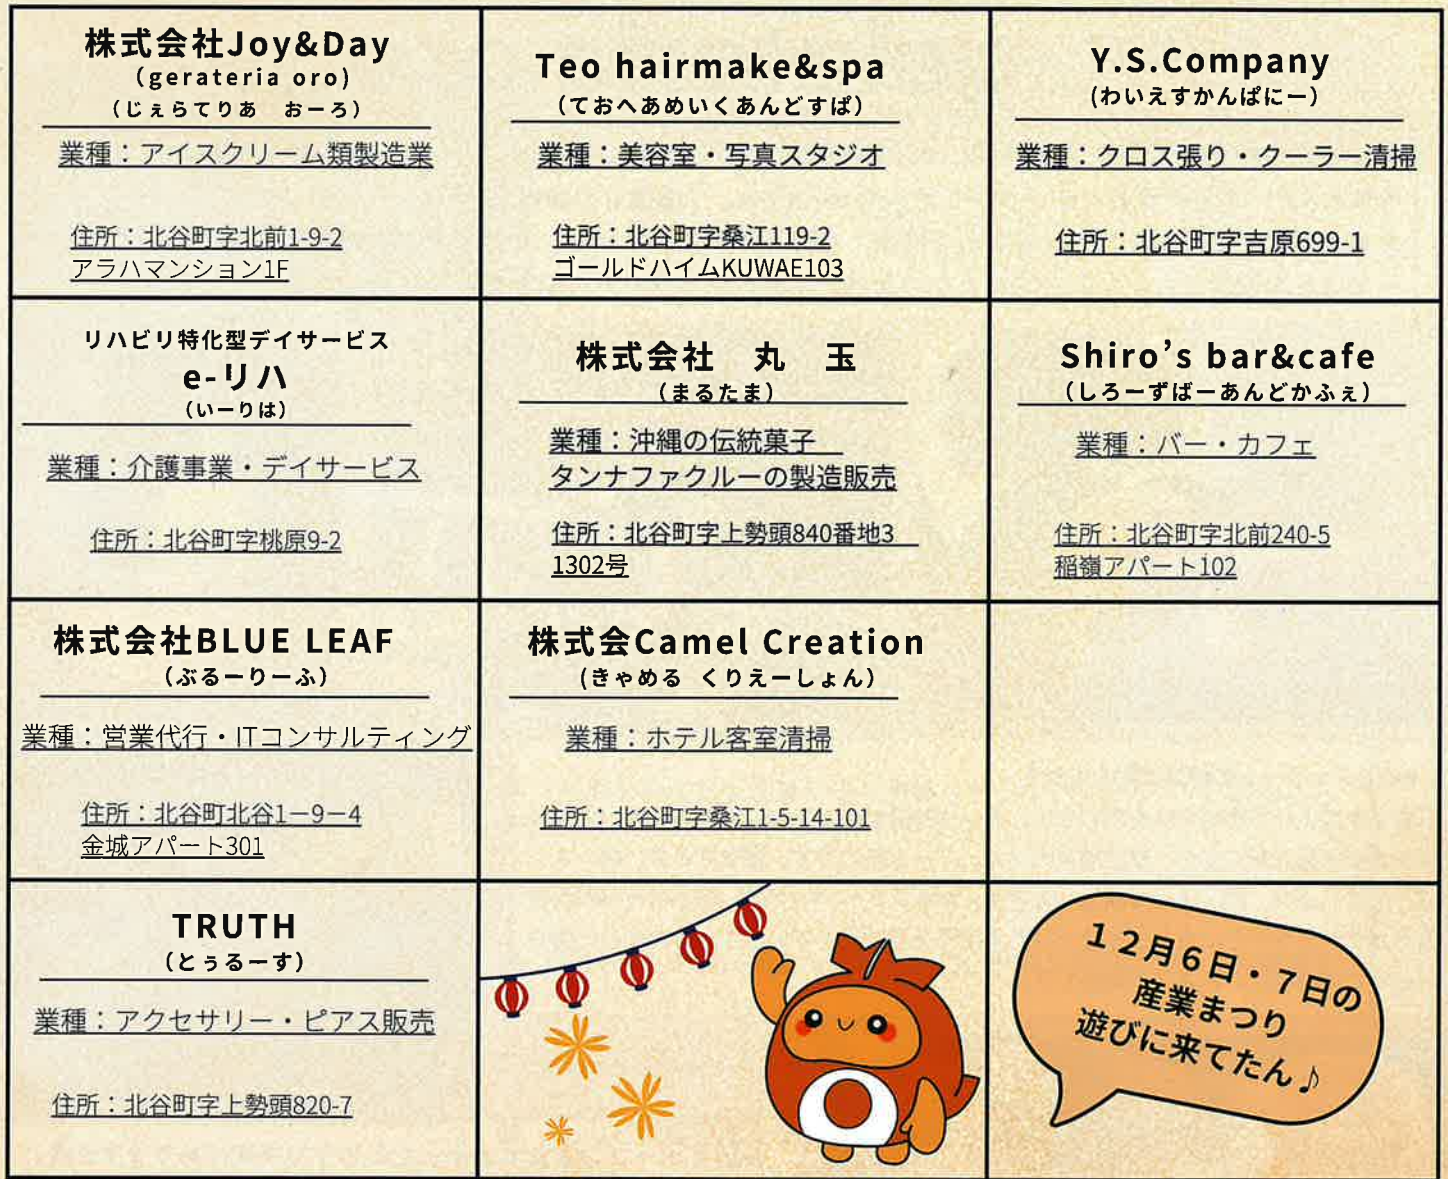 株式会社Joy&Day
（gerateria oro）
（じぇらてりあ　おーろ）
業種：アイスクリーム類製造業
住所：北谷町字北前1-9-2
アラハマンション1F
Teo hairmake&spa
（ておへあめいくあんどすぱ）
業種：美容室・写真スタジオ
住所：北谷町字桑江119-2
ゴールドハイムKUWAE103
Y.S.Company
（わいえすかんぱにー）
業種：クロス張り・クーラー清掃
住所：北谷町字吉原699-1
リハビリ特化型デイサービス
e-リハ
（いーりは）
業種：介護事業・デイサービス
住所：北谷町字桃原9-2
株式会社　丸　玉
（まるたま）
業種：沖縄の伝統菓子
タンナファクルーの製造販売
住所：北谷町字上勢頭840番地3
1302号
Shiro’s bar&cafe
（しろーずばーあんどかふぇ）
業種：バー・カフェ
住所：北谷町字北前240-5
稲嶺アパート102
株式会社BLUE LEAF
（ぶるーりーふ）
業種：営業代行・ITコンサルティング
住所：北谷町北谷1－9－4
金城アパート301
株式会Camel Creation
（きゃめる くりえーしょん）
業種：ホテル客室清掃
住所：北谷町字桑江1-5-14-101
TRUTH
（とぅるーす）
業種：アクセサリー・ピアス販売
住所：北谷町字上勢頭820-7
１２月６日・７日の
産業まつり
遊びに来てたん♪